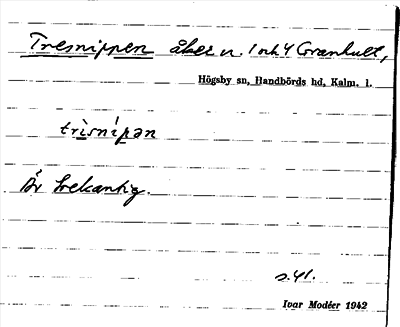 Tresnippen åker n. 1 och 4 Granhult,
Högsby sn, Handbörds hd, Kalm. l.
trìsnípan
Är trekantig.
s. 41.
Ivar Modéer 1942